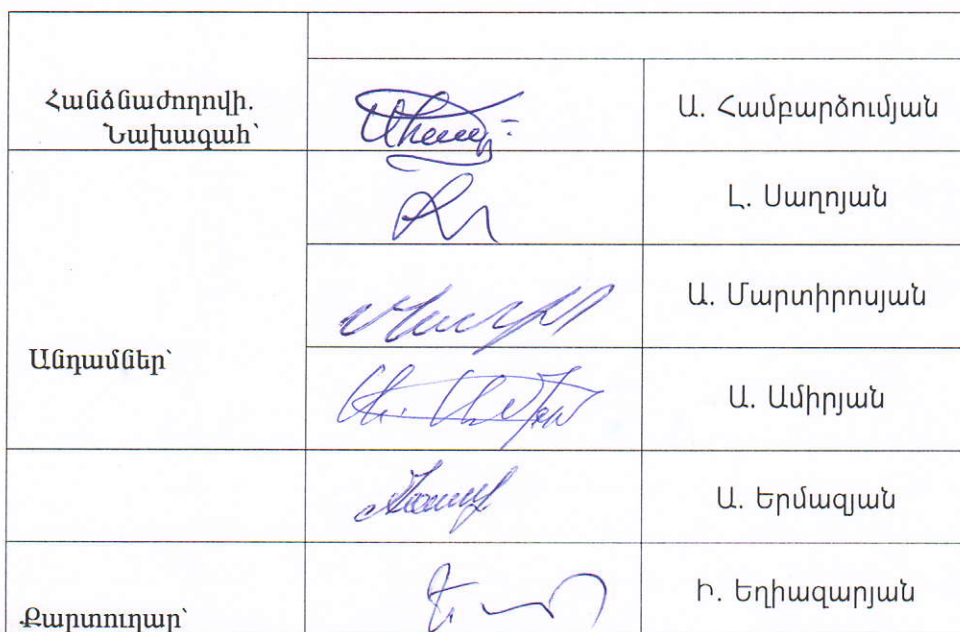 Հանձնաժողովի.
Նախագահ՝
Ա. Համբարձումյան
Լ. Սաղոյան
Ա. Մարտիրոսյան
Անդամներ՝
Ա. Ամիրյան
Ա. Երմազյան
Քարտուղար՝
Ի. Եղիազարյան